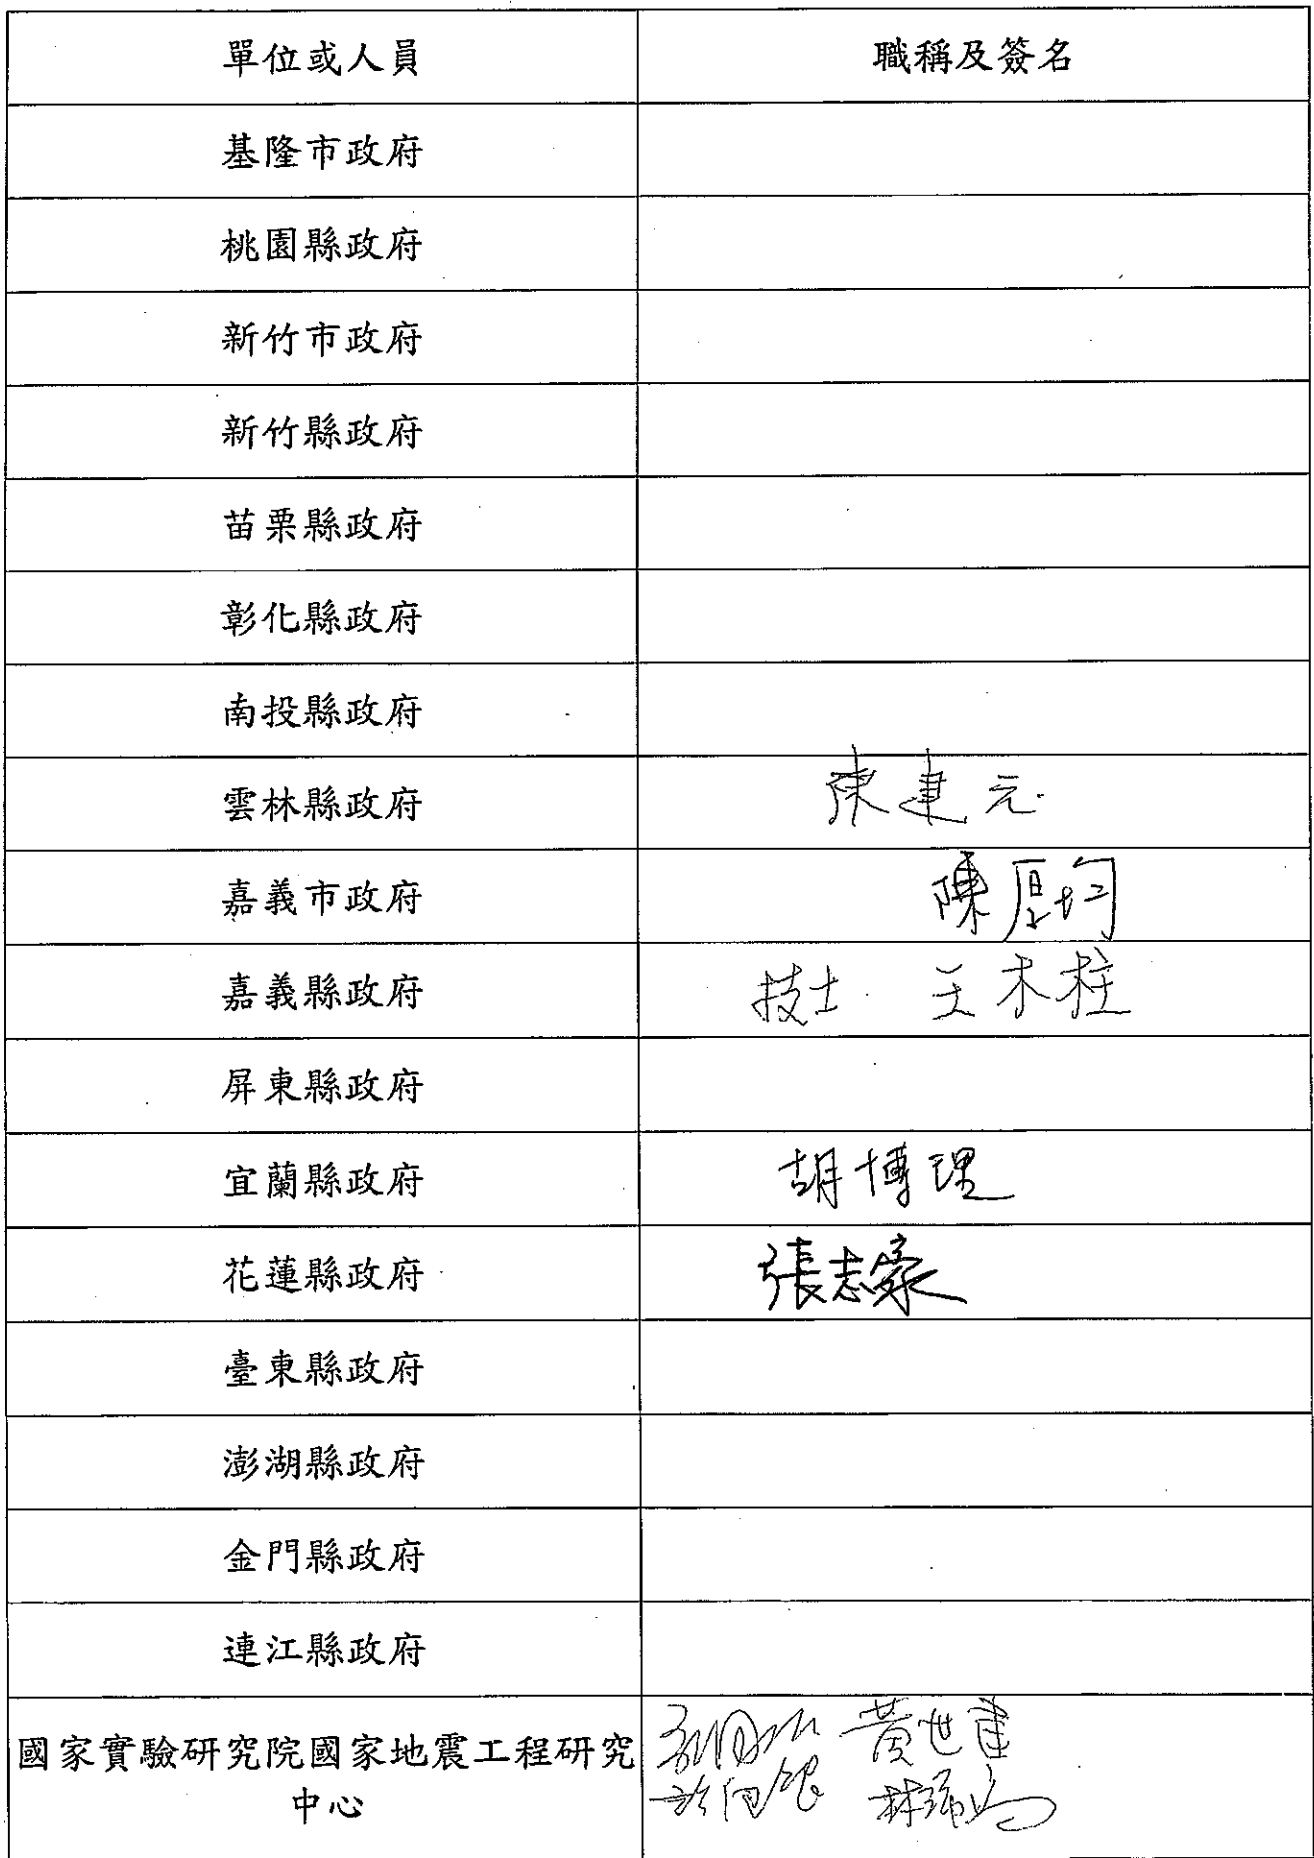 單位或人員 職稱及簽名
基隆市政府
桃園縣政府
新竹市政府
新竹縣政府
苗栗縣政府
彰化縣政府
南投縣政府
雲林縣政府 陳建元
嘉義市政府 陳厚均
嘉義縣政府 技士 王木柱
屏東縣政府
宜蘭縣政府 胡博理
花蓮縣政府 張志豪
臺東縣政府
澎湖縣政府
金門縣政府
連江縣政府
國家實驗研究院國家地震工程研究 黃世建
中心